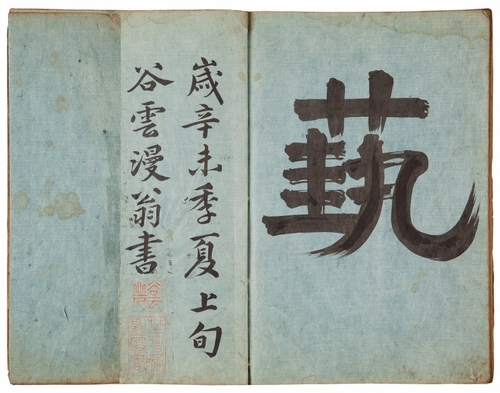 藝
歲辛未季夏上旬
谷雲漫翁書